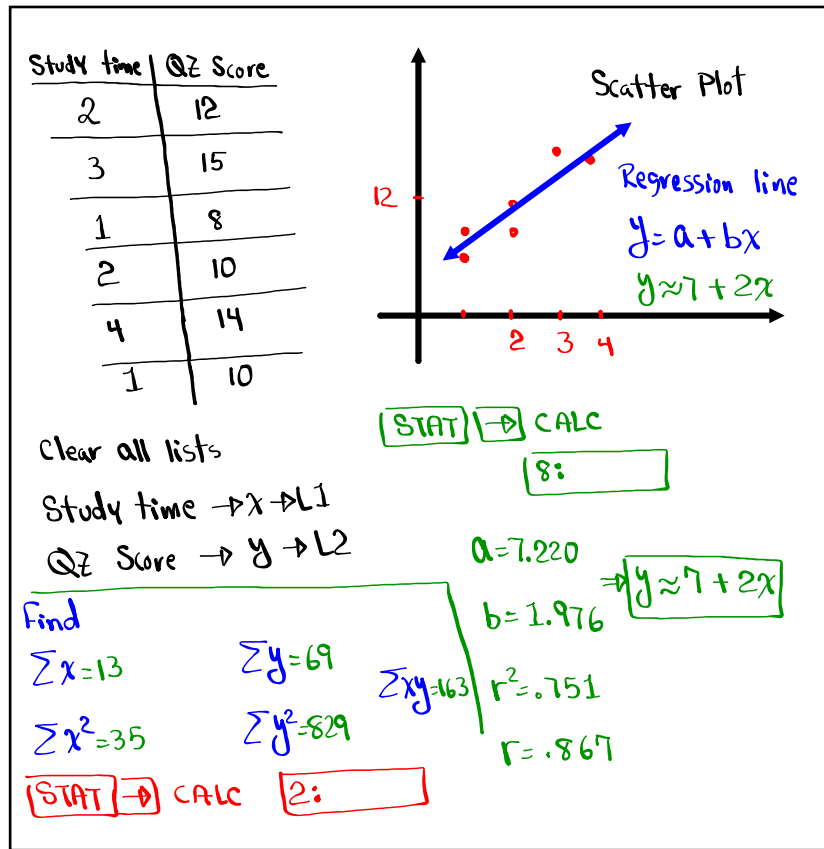 Study time | QZ Score
2 | 12
3 | 15
1 | 8
2 | 10
4 | 14
1 | 10
Scatter Plot
12
2 3 4
Regression line
y=a+bx
y≈7+2x
Clear all lists
Study time → x → L1
QZ Score → y → L2
STAT → CALC
8:
a=7.220
b=1.976
⇒ y≈7+2x
r²=.751
r=.867
Find
∑x=13 ∑y=69 ∑xy=163
∑x²=35 ∑y²=829
STAT → CALC 2: